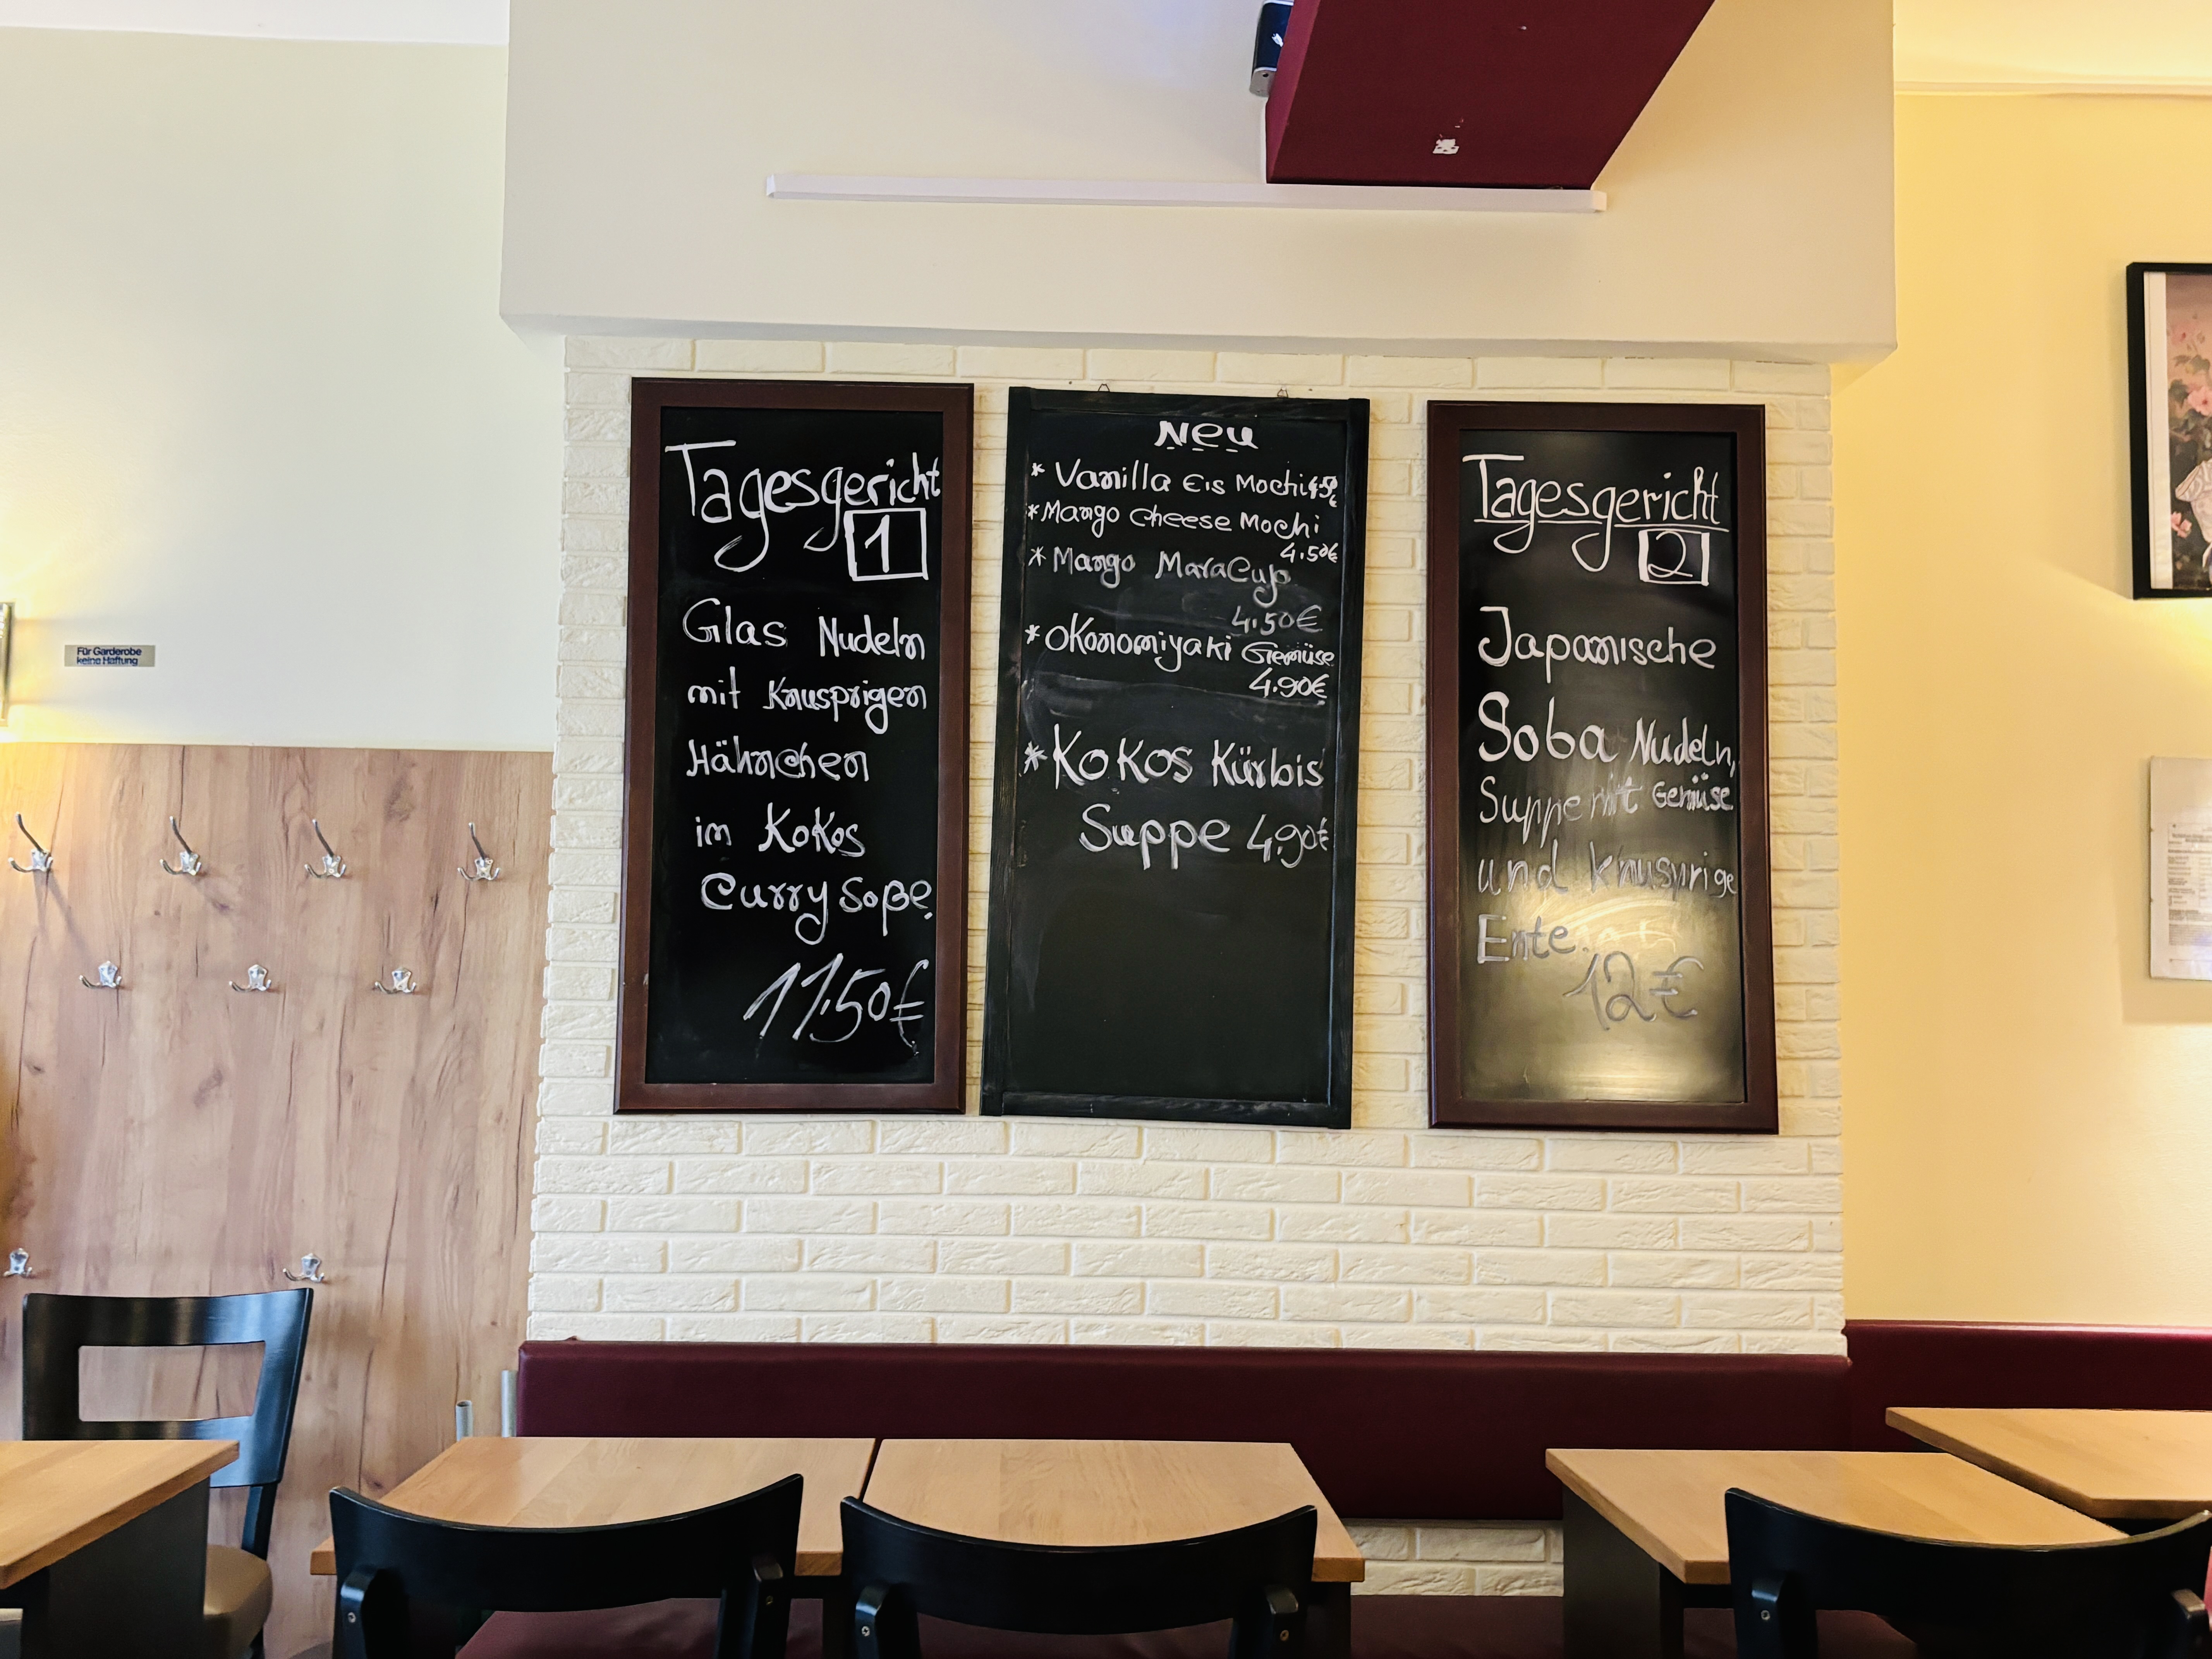 Für Garderobe
keine Haftung
Tagesgericht
1
Glas Nudeln
mit Knusprigen
Hähnchen
im Kokos
Curry Soße
11.50€
Neu
* Vanilla Eis Mochi 4.50
€
* Mango Cheese Mochi
4.50€
* Mango MaraCup
4.50€
* Okonomiyaki Gemüse
4.90€
* Kokos Kürbis
Suppe 4.90€
Tagesgericht
2
Japanische
Soba Nudeln,
Suppe mit Gemüse
und knusprige
Ente.
12€